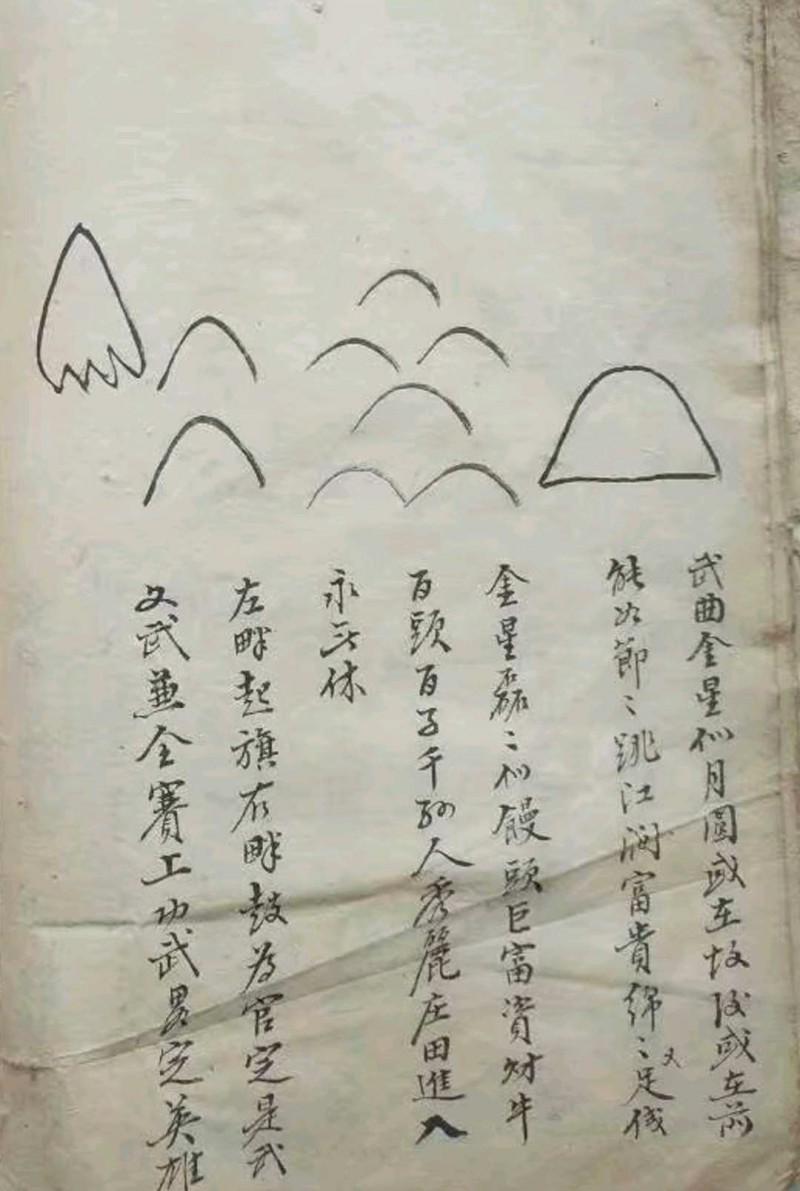 武曲金星似月圓或在坟後或在前
能節〻跳江澗富貴綿〻又足
金星磊〻似饅頭巨富資财牛
百頭百子千孙人秀麗庄田進入
永无休
左畔起旗右畔鼓为官定是武
文武兼全賽工功武畧定英雄